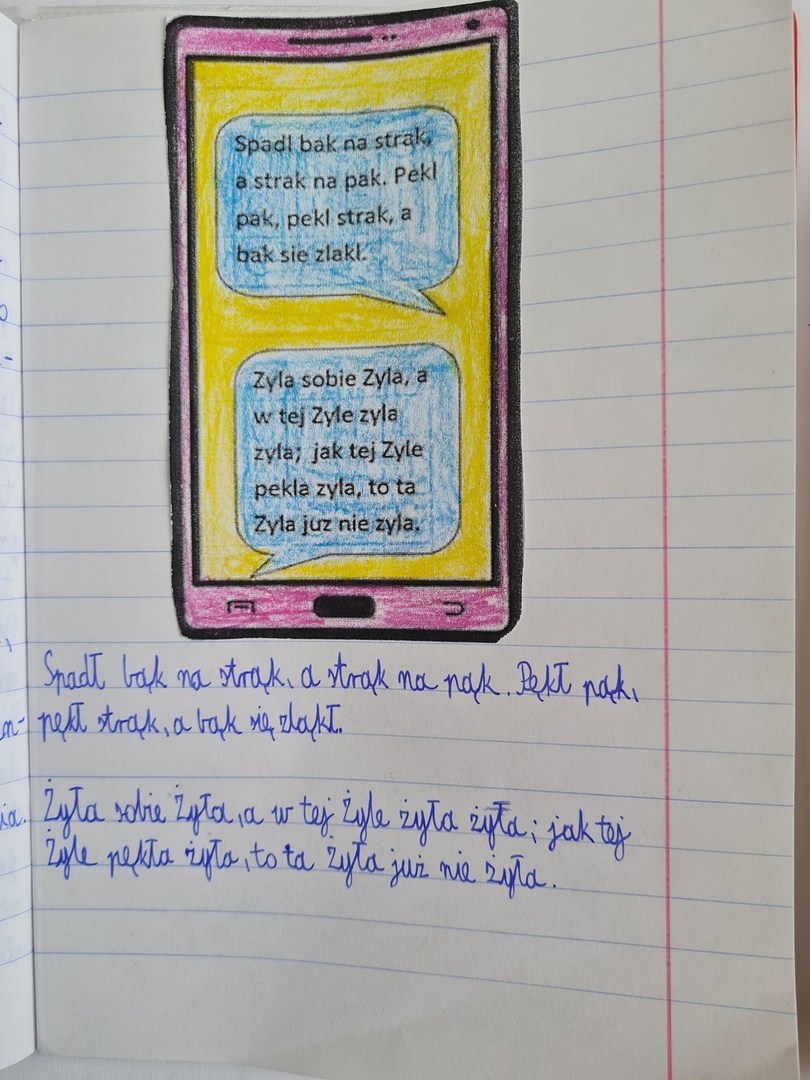 Spadl bak na strak,
a strak na pak. Pekl
pak, pekl strak, a
bak sie zlakl.
Zyla sobie Zyla, a
w tej Zyle zyla
zyla; jak tej Zyle
pekla zyla, to ta
Zyla juz nie zyla.
Spadł bąk na strąk, a strąk na pąk. Pękł pąk,
pękł strąk, a bąk się zląkł.
Żyła sobie Żyła, a w tej Żyle żyła żyła; jak tej
Żyle pękła żyła, to ta Żyła już nie żyła.